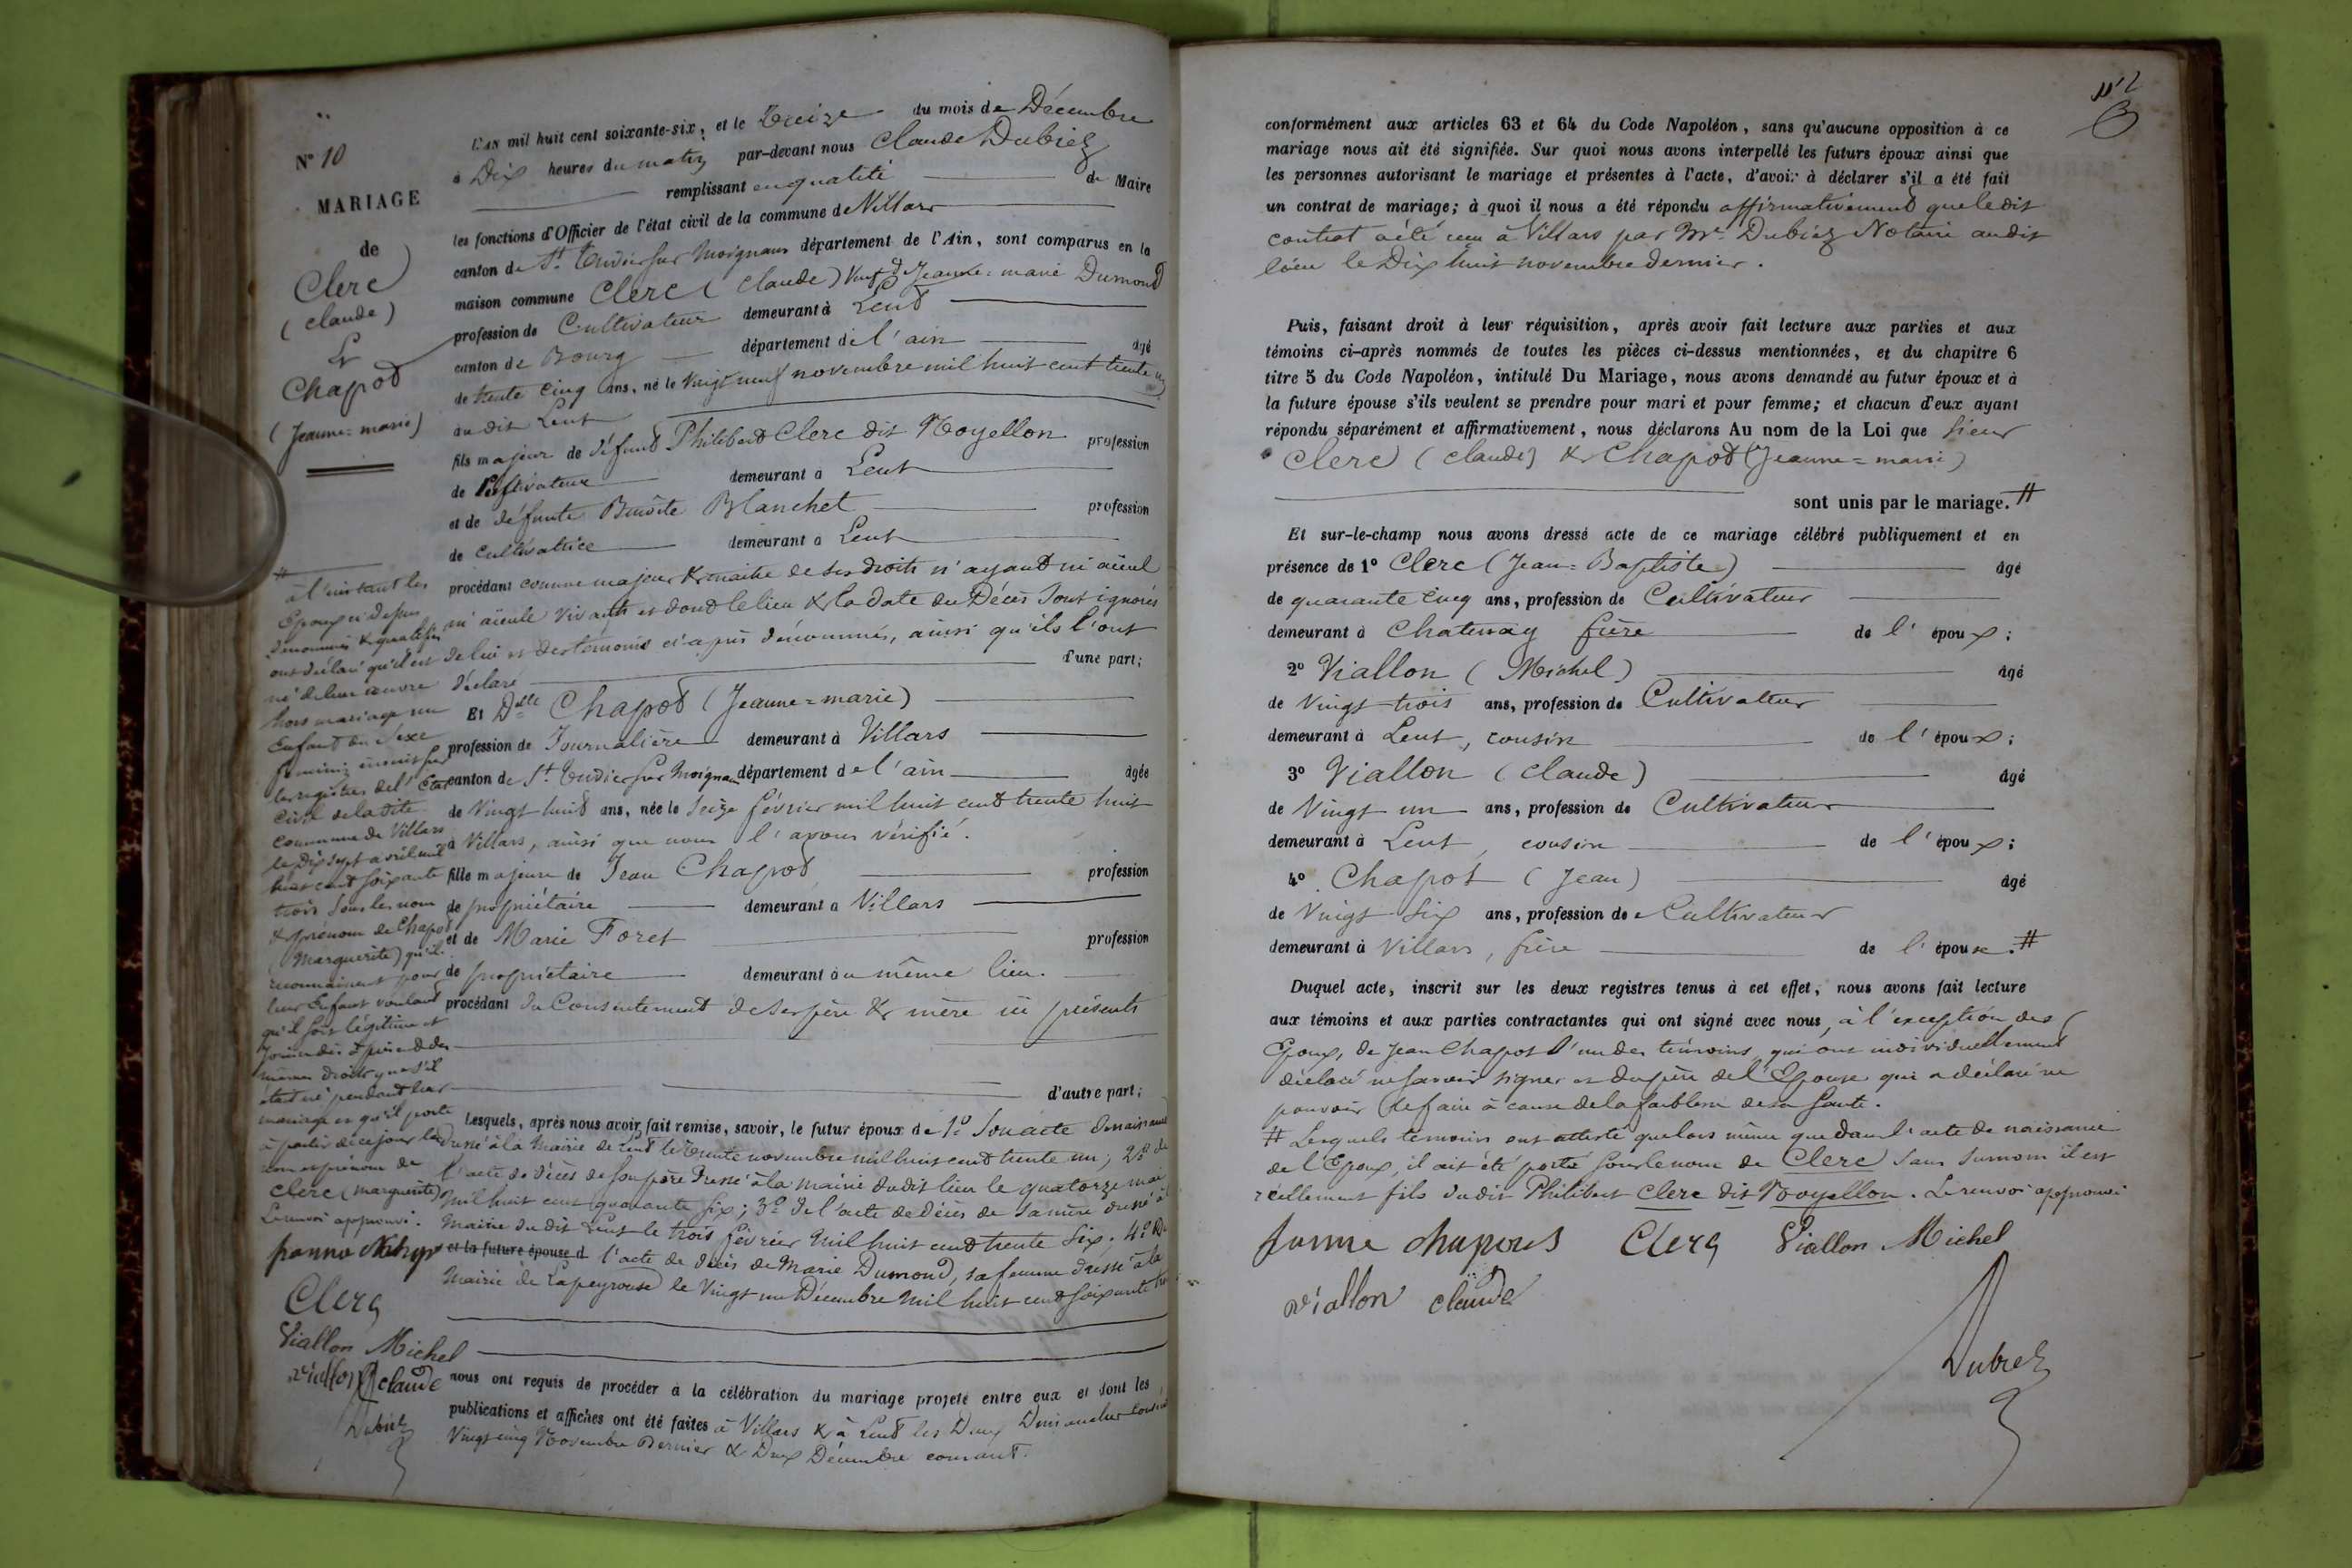 N° 10
MARIAGE
de
Clerc
(Claude)
&
Chapot
(Jeanne=marie)
L'AN mil huit cent soixante-six, et le Treize du mois de Décembre
à Dix heures du matin par-devant nous Claude Dubiez
remplissant en qualité de Maire
les fonctions d'Officier de l'état civil de la commune de Villars
canton de St. Trivier sur Moignans département de l'Ain, sont comparus en la
maison commune Clerc (Claude) Veuf de Jeanne=marie Dumond
profession de Cultivateur demeurant à Lent
canton de Bourg département de l'ain âgé
de trente cinq ans, né le Vingt neuf novembre mil huit cent trente un
au dit Lent
fils majeur de défunt Philibert Clerc dit Noyellon profession
de Cultivateur demeurant à Lent
et de défunte Benoîte Blanchet profession
de Cultivatrice demeurant à Lent
procédant comme majeur & maître de ses droits n'ayant ni aïeul
ni aïeule vivants et dont le lieu & la date du Décès sont ignorés
de lui et des témoins ci-après dénommés, ainsi qu'ils l'ont
déclaré d'une part;
Et Delle Chapot (Jeanne=marie)
profession de Journalière demeurant à Villars
canton de St. Trivier sur Moignans département de l'ain âgée
de Vingt huit ans, née le Seize février mil huit cent trente huit
à Villars, ainsi que nous l'avons vérifié.
fille majeure de Jean Chapot profession
de propriétaire demeurant à Villars
et de Marie Foret profession
de propriétaire demeurant au même lieu.
procédant du Consentement de ses père & mère ici présents
d'autre part;
Lesquels, après nous avoir fait remise, savoir, le futur époux de 1° Son acte de naissance
dressé à la Mairie de Lent le trente novembre mil huit cent trente un; 2° de
l'acte de décès de son père Dressé à la mairie dudit lieu le quatorze mai
mil huit cent quarante six; 3° de l'acte de décès de sa mère dressé à la
mairie du dit Lent le trois février mil huit cent trente six; 4° de
et la future épouse d l'acte de décès de Marie Dumond, sa femme dressé à la
Mairie de Lapeyrouse le Vingt un Décembre mil huit cent soixante
nous ont requis de procéder à la célébration du mariage projeté entre eux et dont les
publications et affiches ont été faites à Villars & à Lent les Deux Dimanches
Vingt cinq Novembre Dernier & Deux Décembre courant.
#
à l'instant les
Epoux ci-dessus
dénommés & qualifiés
ont déclaré qu'il est
né de leur œuvre
hors mariage un
Enfant du Sexe
féminin inscrit sur
les registres de l'Etat
civil de la dite
Commune de Villars
le Dix sept avril mil
huit cent soixante
trois sous les nom
& prénom de Chapot
(Marguerite) qu'ils
reconnaissent pour
leur Enfant voulant
qu'il soit légitime et
jouisse dès à présent des
mêmes droits que s'il
était né pendant leur
mariage et qu'il porte
à partir de ce jour les
nom et prénom de
Clerc (Marguerite)
Le renvoi approuvé.
Clerc
Viallon Michel
viallon claude
Dubiez
112
conformément aux articles 63 et 64 du Code Napoléon, sans qu'aucune opposition à ce
mariage nous ait été signifiée. Sur quoi nous avons interpellé les futurs époux ainsi que
les personnes autorisant le mariage et présentes à l'acte, d'avoir à déclarer s'il a été fait
un contrat de mariage; à quoi il nous a été répondu affirmativement que le dit
contrat a été reçu à Villars par Me. Dubiez Notaire audit
lieu le Dix huit novembre dernier.
Puis, faisant droit à leur réquisition, après avoir fait lecture aux parties et aux
témoins ci-après nommés de toutes les pièces ci-dessus mentionnées, et du chapitre 6
titre 5 du Code Napoléon, intitulé Du Mariage, nous avons demandé au futur époux et à
la future épouse s'ils veulent se prendre pour mari et pour femme; et chacun d'eux ayant
répondu séparément et affirmativement, nous déclarons Au nom de la Loi que Sieur
Clerc (Claude) & Chapot (Jeanne=marie)
sont unis par le mariage. #
Et sur-le-champ nous avons dressé acte de ce mariage célébré publiquement et en
présence de 1° Clerc (Jean=Baptiste) âgé
de quarante cinq ans, profession de Cultivateur
demeurant à Chatenay frère de l'époux;
2° Viallon (Michel) âgé
de Vingt trois ans, profession de Cultivateur
demeurant à Lent, cousin de l'époux;
3° Viallon (Claude) âgé
de Vingt un ans, profession de Cultivateur
demeurant à Lent, cousin de l'époux;
4° Chapot (Jean) âgé
de Vingt Six ans, profession de Cultivateur
demeurant à Villars, frère de l'épouse. #
Duquel acte, inscrit sur les deux registres tenus à cet effet, nous avons fait lecture
aux témoins et aux parties contractantes qui ont signé avec nous, à l'exception des
Epoux, de Jean Chapot l'un des témoins, qui ont individuellement
déclaré ne savoir signer et du père de l'Epouse qui a déclaré ne
pouvoir le faire à cause de la faiblesse de sa Santé.
# Lesquels témoins ont attesté que lors même que dans l'acte de naissance
de l'Epoux, il ait été porté sous le nom de Clerc sans surnom il est
réellement fils du dit Philibert Clerc dit Noyellon. Le renvoi approuvé
Clerc Viallon Michel
viallon claude
Dubiez